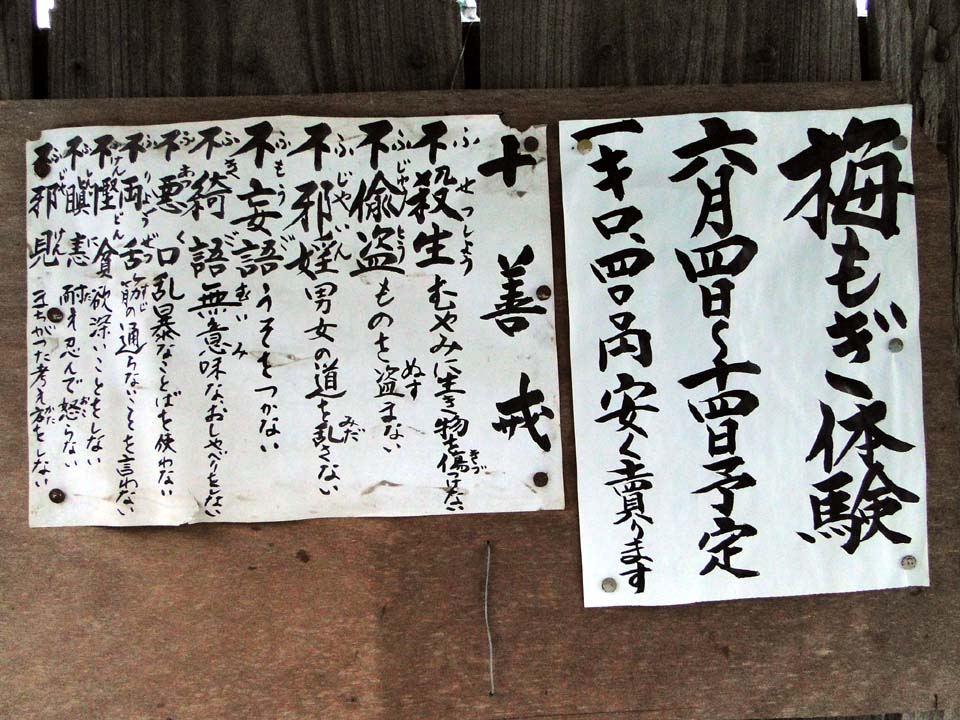 梅もぎ体験
六月四日〜十四日予定
一キロ、四〇両安く売ります
十善戒
不殺生 むやみに生き物を傷つけない
ふせっしょう きづ
不偸盗 ものを盗まない
とう ぬす
不邪婬 男女の道を乱さない
ふじゃいん みだ
不妄語 うそをつかない
ふもうご
不綺語 無意味なおしゃべりをしない
ふきご むいみ
不悪口 乱暴なことばを使わない
ふあっく
不両舌 筋の通らないことを言わない
ふりょうぜつ すじ
不慳貪 欲深いことをしない
けんどん
不瞋恚 耐え忍んで怒らない
に た お
不邪見 まちがった考え方をしない
ふじゃけん かた